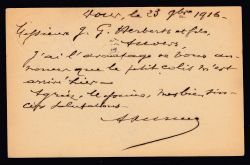 le 23 9bre 1916.
Messieurs J. G. Herberts et fils,
Anvers.
J'ai l'avantage de vous an-
noncer que le petit colis m'est
arrivé hier.
Agréez, Messieurs, mes bien sin-
cères salutations.